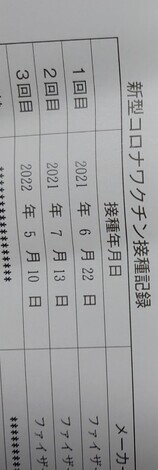 新型コロナワクチン接種記録
接種年月日 メーカ
1回目 2021 年 6 月 22 日 ファイザ
2回目 2021 年 7 月 13 日 ファイザ
3回目 2022 年 5 月 10 日 ファイザ